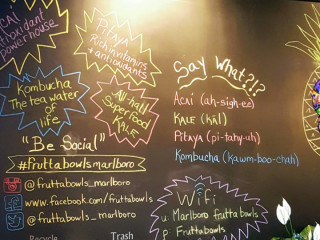 antioxidant
powerhouse
Pitaya
Rich vitamins
+ antioxidants
Kombucha
The tea water
of
life
All-hail
Superfood
KALE
Say What?!?
Acai (ah-sigh-ee)
Kale (kāl)
Pitaya (pi-tahy-uh)
Kombucha (kawm-boo-chah)
"Be Social"
#fruttabowlsmarlboro
@fruttabowls_marlboro
www.facebook.com/fruttabowls
@fruttabowls_marlboro
Wifi
u: Marlboro frutta bowls
p: Fruttabowls
Recycle
Trash